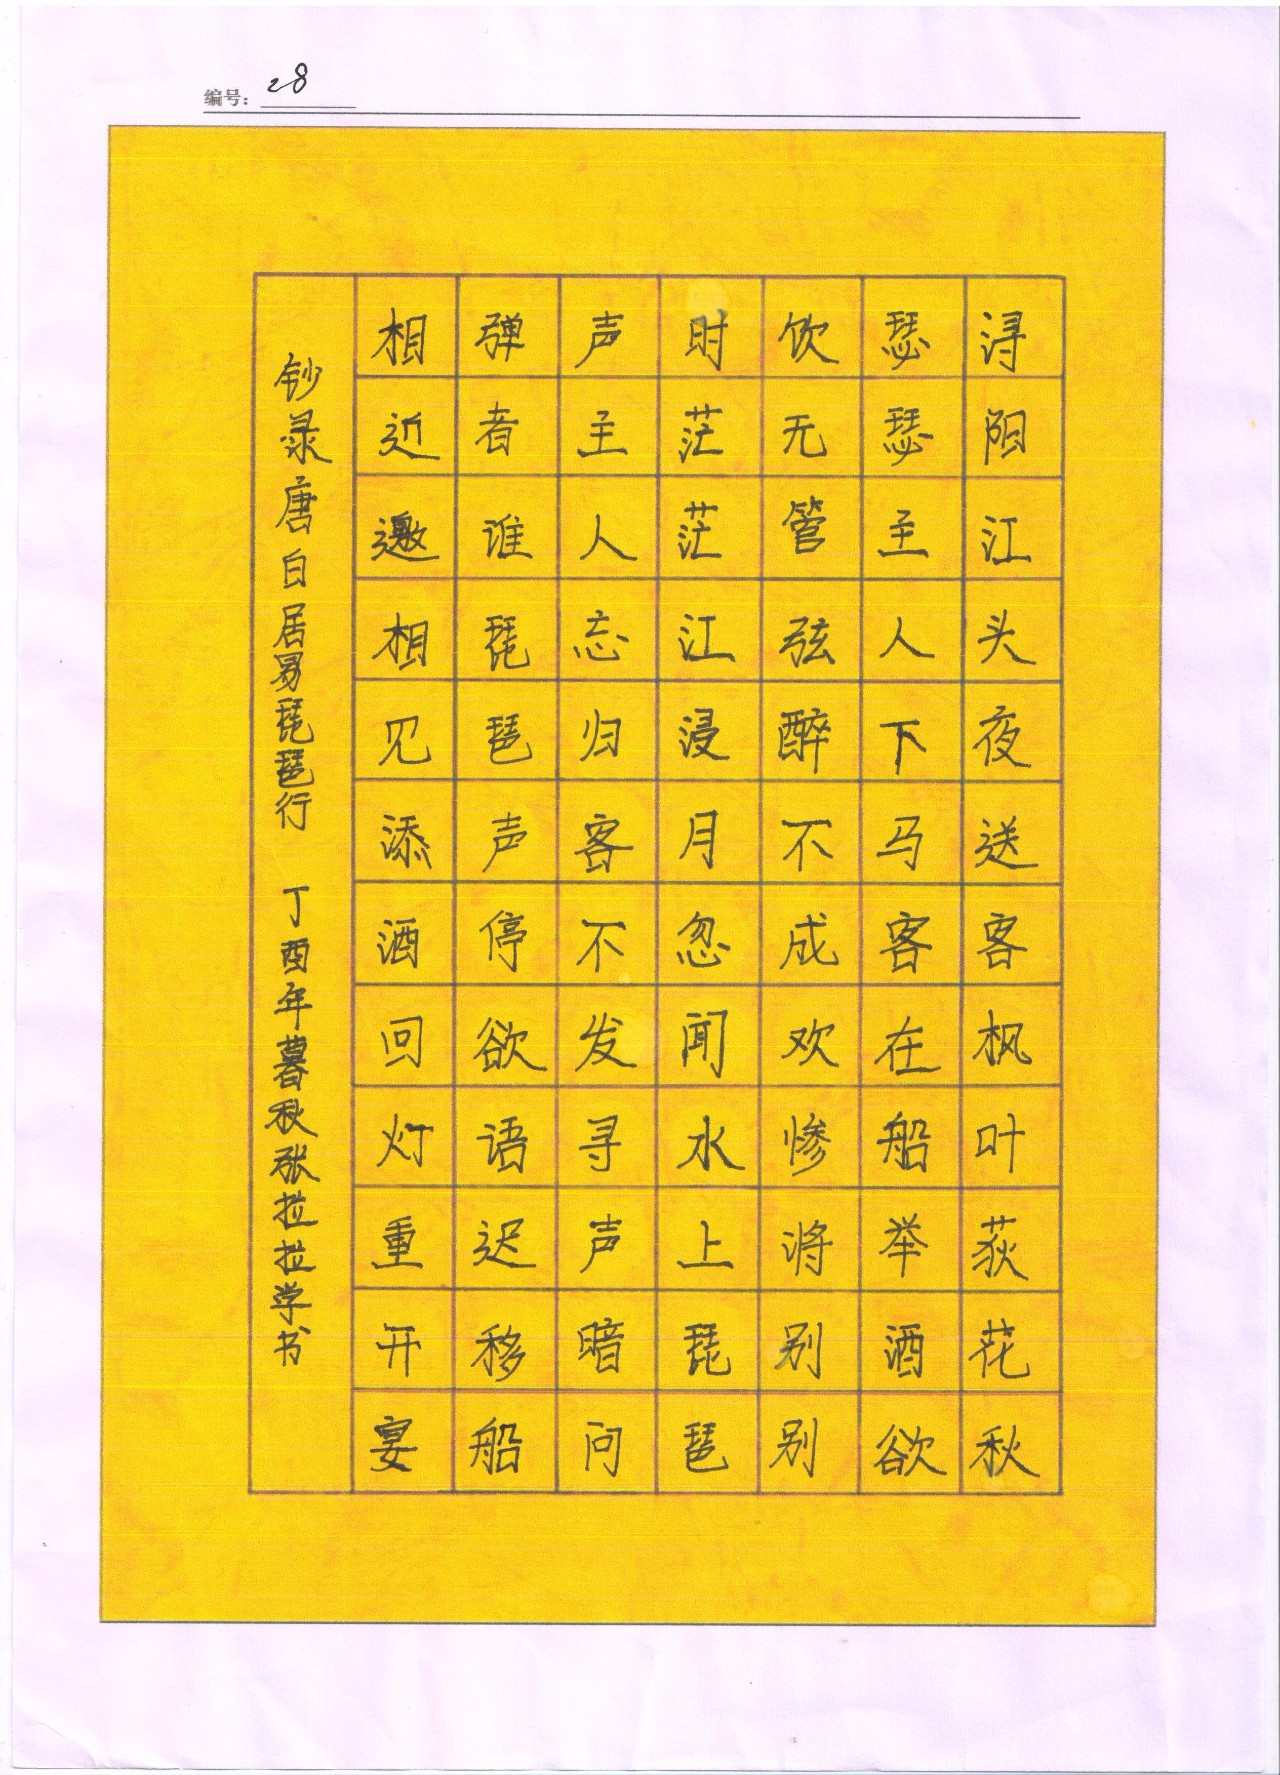 编号：28
浔阳江头夜送客枫叶荻花秋
瑟瑟主人下马客在船举酒欲
饮无管弦醉不成欢惨将别别
时茫茫江浸月忽闻水上琵琶
声主人忘归客不发寻声暗问
弹者谁琵琶声停欲语迟移船
相近邀相见添酒回灯重开宴
钞录唐白居易琵琶行 丁酉年暮秋张拉拉学书